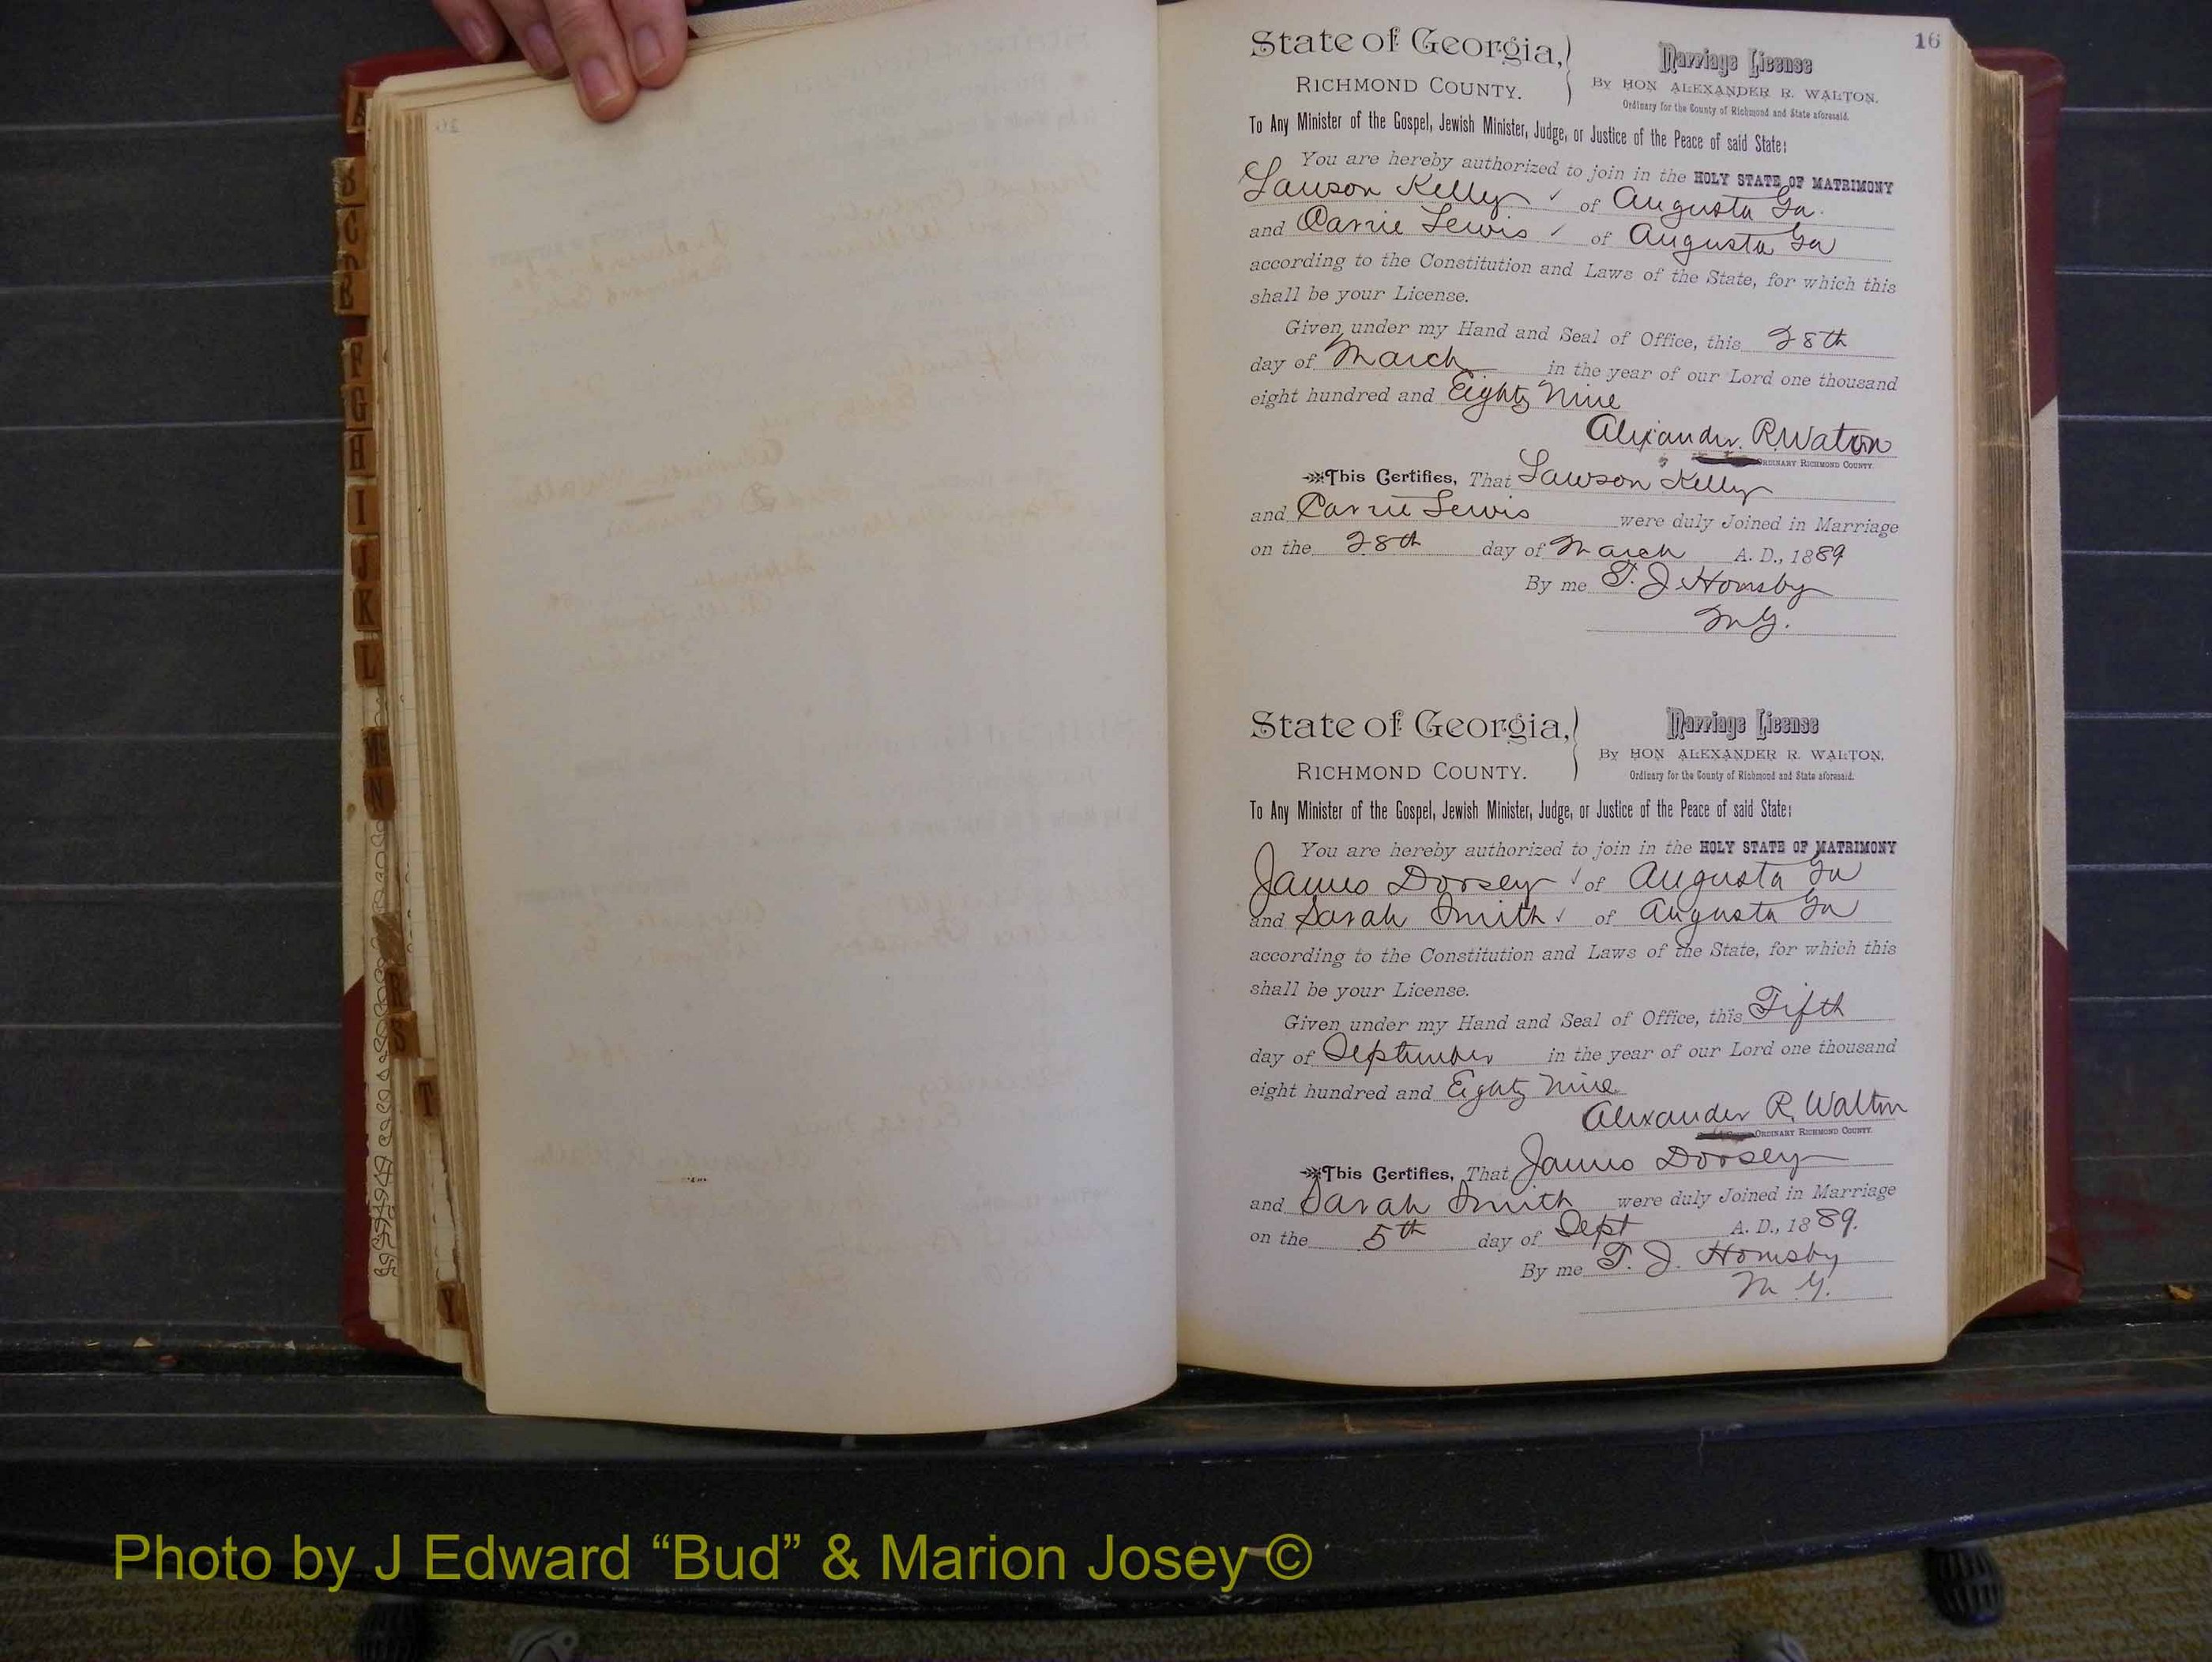 16
State of Georgia,
RICHMOND COUNTY.
Marriage License
By HON ALEXANDER R. WALTON,
Ordinary for the County of Richmond and State aforesaid.
To Any Minister of the Gospel, Jewish Minister, Judge, or Justice of the Peace of said State:
You are hereby authorized to join in the HOLY STATE OF MATRIMONY
Lawson Kelly ✓ of Augusta Ga.
and Carrie Lewis ✓ of Augusta Ga
according to the Constitution and Laws of the State, for which this
shall be your License.
Given under my Hand and Seal of Office, this 28th
day of March in the year of our Lord one thousand
eight hundred and Eighty Nine
Alexander R. Walton
ORDINARY RICHMOND COUNTY.
This Certifies, That Lawson Kelly
and Carrie Lewis were duly Joined in Marriage
on the 28th day of March A. D., 1889
By me T. J. Hornsby
M G.
State of Georgia,
RICHMOND COUNTY.
Marriage License
By HON ALEXANDER R. WALTON,
Ordinary for the County of Richmond and State aforesaid.
To Any Minister of the Gospel, Jewish Minister, Judge, or Justice of the Peace of said State:
You are hereby authorized to join in the HOLY STATE OF MATRIMONY
James Dorsey ✓ of Augusta Ga
and Sarah Smith ✓ of Augusta Ga
according to the Constitution and Laws of the State, for which this
shall be your License.
Given under my Hand and Seal of Office, this Fifth
day of September in the year of our Lord one thousand
eight hundred and Eighty Nine
Alexander R. Walton
ORDINARY RICHMOND COUNTY.
This Certifies, That James Dorsey
and Sarah Smith were duly Joined in Marriage
on the 5th day of Sept A. D., 1889.
By me T. J. Hornsby
M G.
A
B
C
D
E
F
G
H
I
J
K
L
M
N
R
S
T
Y
Photo by J Edward “Bud” & Marion Josey ©